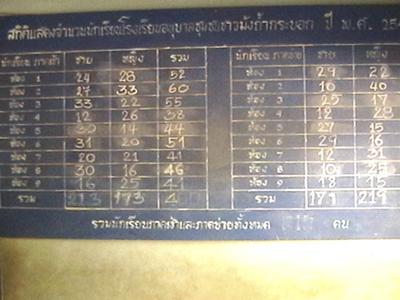 สถิติแสดงจำนวนนักเรียนโรงเรียนอนุบาลชุมชนชาวม้งถ้ำกระบอก ปี พ.ศ. 254
นักเรียน ภาคเช้า ชาย หญิง รวม นักเรียน ภาคบ่าย ชาย หญิง
ห้อง 1 24 28 52 ห้อง 1 29 22
ห้อง 2 27 33 60 ห้อง 2 10 40
ห้อง 3 33 22 55 ห้อง 3 25 17
ห้อง 4 12 26 38 ห้อง 4 12 28
ห้อง 5 30 14 44 ห้อง 5 27 15
ห้อง 6 31 20 51 ห้อง 6 29 16
ห้อง 7 20 21 41 ห้อง 7 12 31
ห้อง 8 30 16 46 ห้อง 8 10
ห้อง 9 16 25 41 ห้อง 9 18 15
รวม รวม 219
รวมนักเรียนภาคเช้าและภาคบ่ายทั้งหมด คน